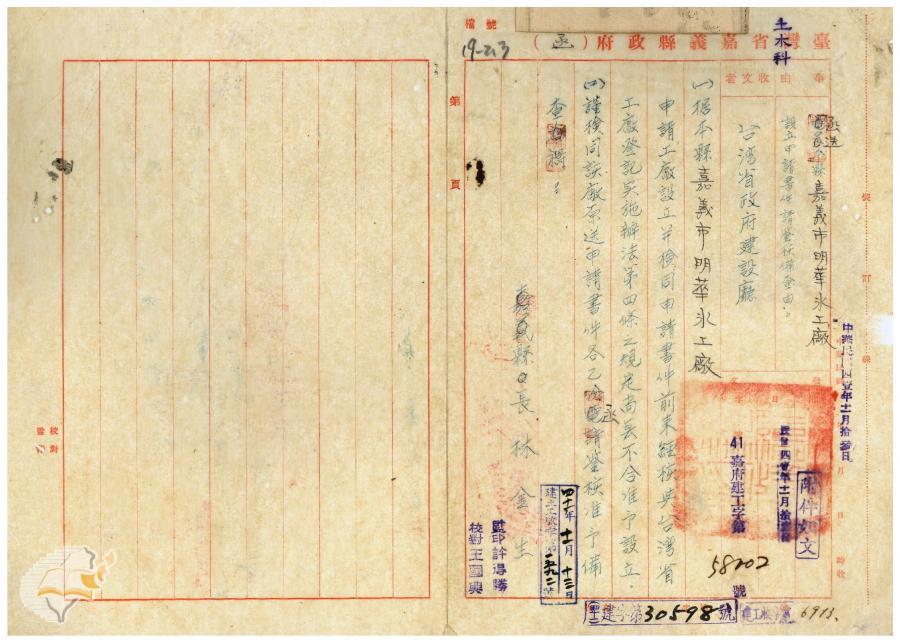 檔號
19-2.3
土木科
臺灣省嘉義縣政府（函）
事由收文者
函送
嘉義市明華冰工廠
設立申請書件請鑒核備查由：
台湾省政府建設廳
㈠据本縣嘉義市明華冰工廠
申請工廠設立并檢同申請書件前來經核與台湾省
工廠登記实施辦法第四條之規定尚無不合准予設立。
㈡謹檢同該廠原送申請書件各乙份函請鑒核准予備
查
嘉義縣長 林金生
監印許得勝
校對王國興
四十一年十一月十三日
附件如文
41 嘉府建工字第
58202
號
建字第30598號
6913.
中華民國四壹年十一月
裝訂線
第
頁
校對